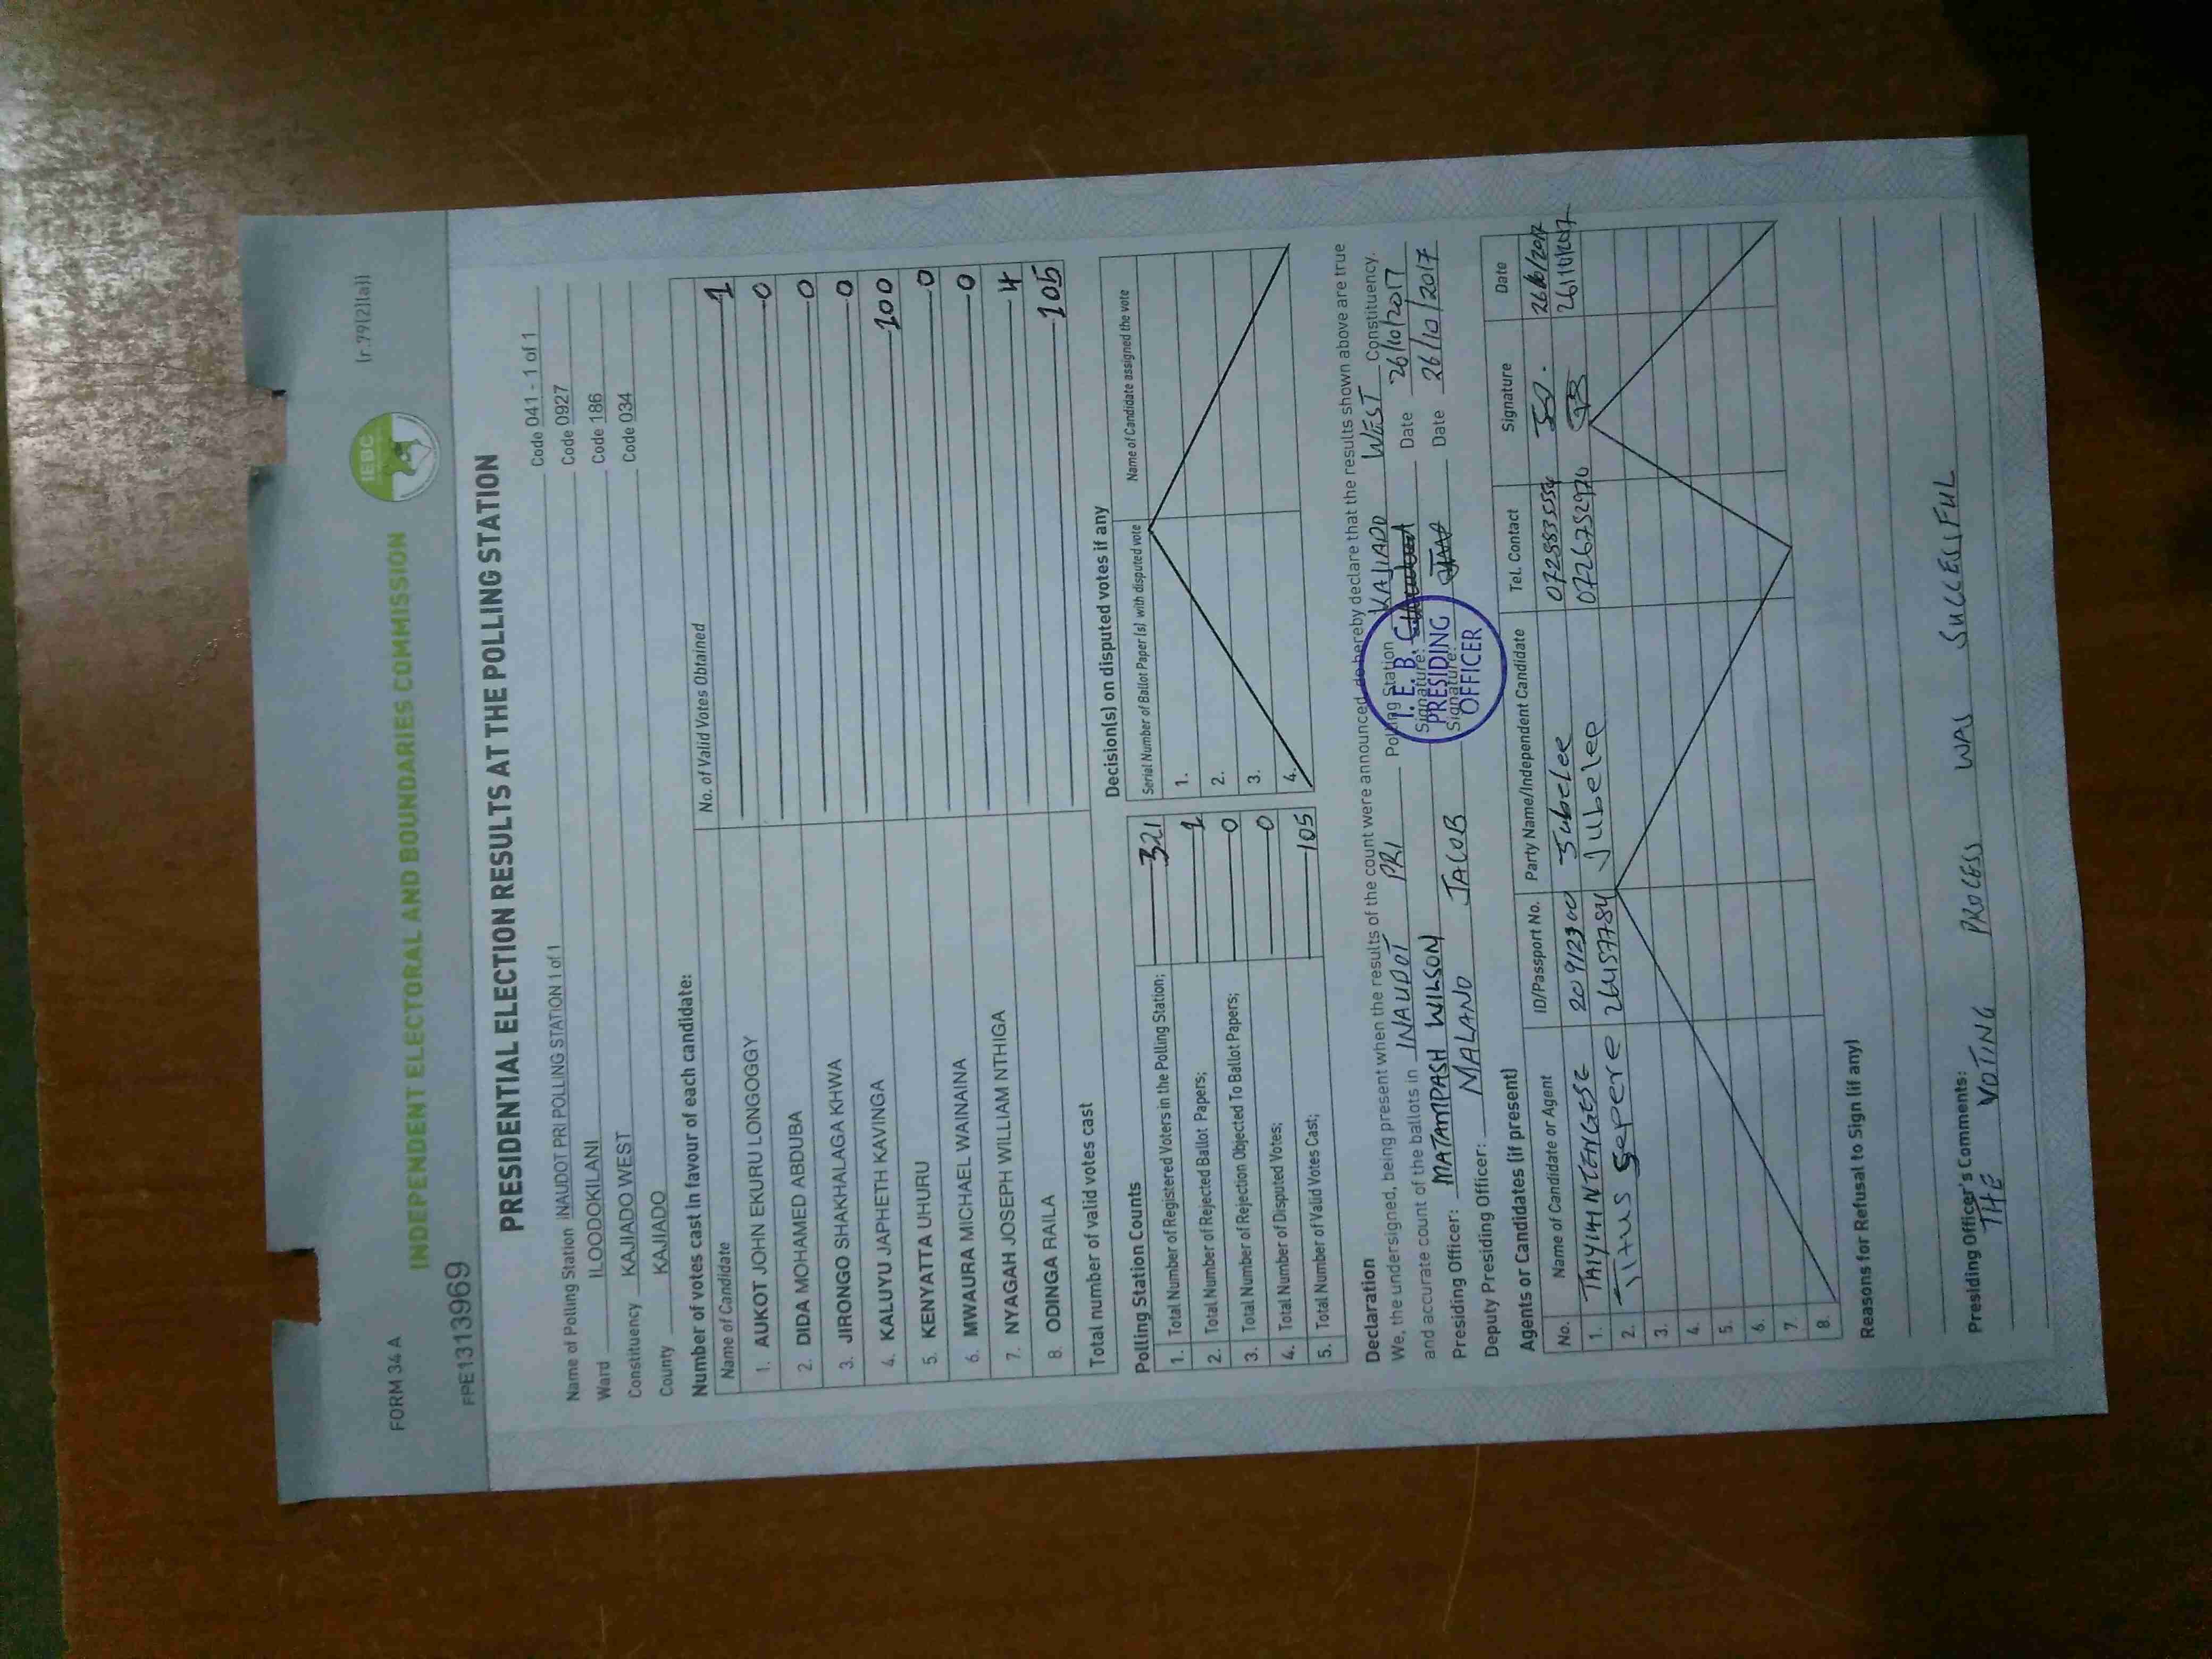 FORM 34 A
(r.79(2)(a))
IEBC
INDEPENDENT ELECTORAL AND BOUNDARIES COMMISSION
FPE1313969
PRESIDENTIAL ELECTION RESULTS AT THE POLLING STATION
Name of Polling Station INAUDOT PRI POLLING STATION 1 of 1 Code 041 - 1 of 1
Ward ILOODOKILANI Code 0927
Constituency KAJIADO WEST Code 186
County KAJIADO Code 034
Number of votes cast in favour of each candidate:
Name of Candidate No. of Valid Votes Obtained
1. AUKOT JOHN EKURU LONGOGGY 1
2. DIDA MOHAMED ABDUBA 0
3. JIRONGO SHAKHALAGA KHWA 0
4. KALUYU JAPHETH KAVINGA 0
5. KENYATTA UHURU 100
6. MWAURA MICHAEL WAINAINA 0
7. NYAGAH JOSEPH WILLIAM NTHIGA 0
8. ODINGA RAILA 4
Total number of valid votes cast 105
Polling Station Counts
1. Total Number of Registered Voters in the Polling Station; 321
2. Total Number of Rejected Ballot Papers; 1
3. Total Number of Rejection Objected To Ballot Papers; 0
4. Total Number of Disputed Votes; 0
5. Total Number of Valid Votes Cast; 105
Decision(s) on disputed votes if any
Serial Number of Ballot Paper (s) with disputed vote Name of Candidate assigned the vote
1.
2.
3.
4.
Declaration
We, the undersigned, being present when the results of the count were announced, do hereby declare that the results shown above are true
and accurate count of the ballots in INAUDOT PRI Polling Station KAJIADO WEST Constituency.
Presiding Officer: MATAMPASH WILSON Signature: Date 26/10/2017
Deputy Presiding Officer: MALANO JACOB Signature: Date 26/10/2017
I. E. B. C
PRESIDING
OFFICER
Agents or Candidates (if present)
No. Name of Candidate or Agent ID/Passport No. Party Name/Independent Candidate Tel. Contact Signature Date
1. 20912300 Jubelee 26/10/2017
2. Titus Sepere 26457784 Jubelee 0726752970 26/10/2017
3.
4.
5.
6.
7.
8.
Reasons for Refusal to Sign (if any)
Presiding Officer's Comments:
THE VOTING PROCESS WAS SUCCESSFUL